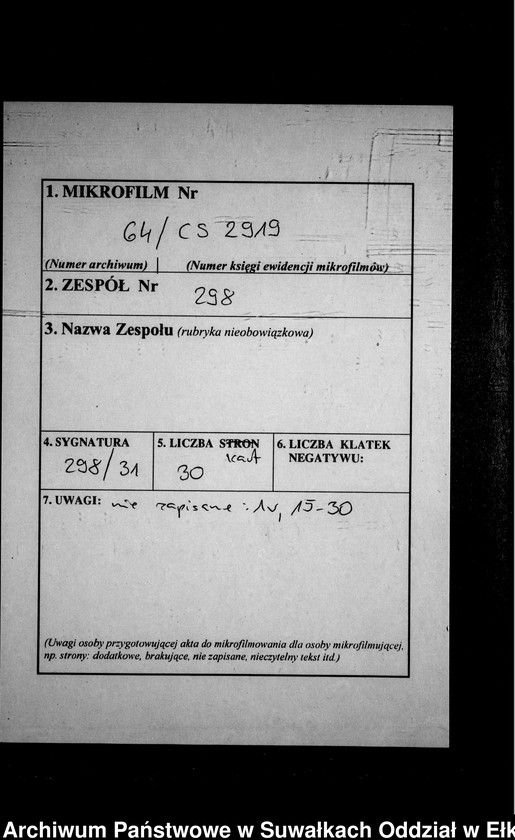 1. MIKROFILM Nr
64/CS 2919
(Numer archiwum) | (Numer księgi ewidencji mikrofilmów)
2. ZESPÓŁ Nr
298
3. Nazwa Zespołu (rubryka nieobowiązkowa)
4. SYGNATURA
298/31
5. LICZBA STRON
kart
30
6. LICZBA KLATEK
NEGATYWU:
7. UWAGI: nie zapisane : 1v, 15-30
(Uwagi osoby przygotowującej akta do mikrofilmowania dla osoby mikrofilmującej,
np. strony: dodatkowe, brakujące, nie zapisane, nieczytelny tekst itd.)
Archiwum Państwowe w Suwałkach Oddział w Ełk